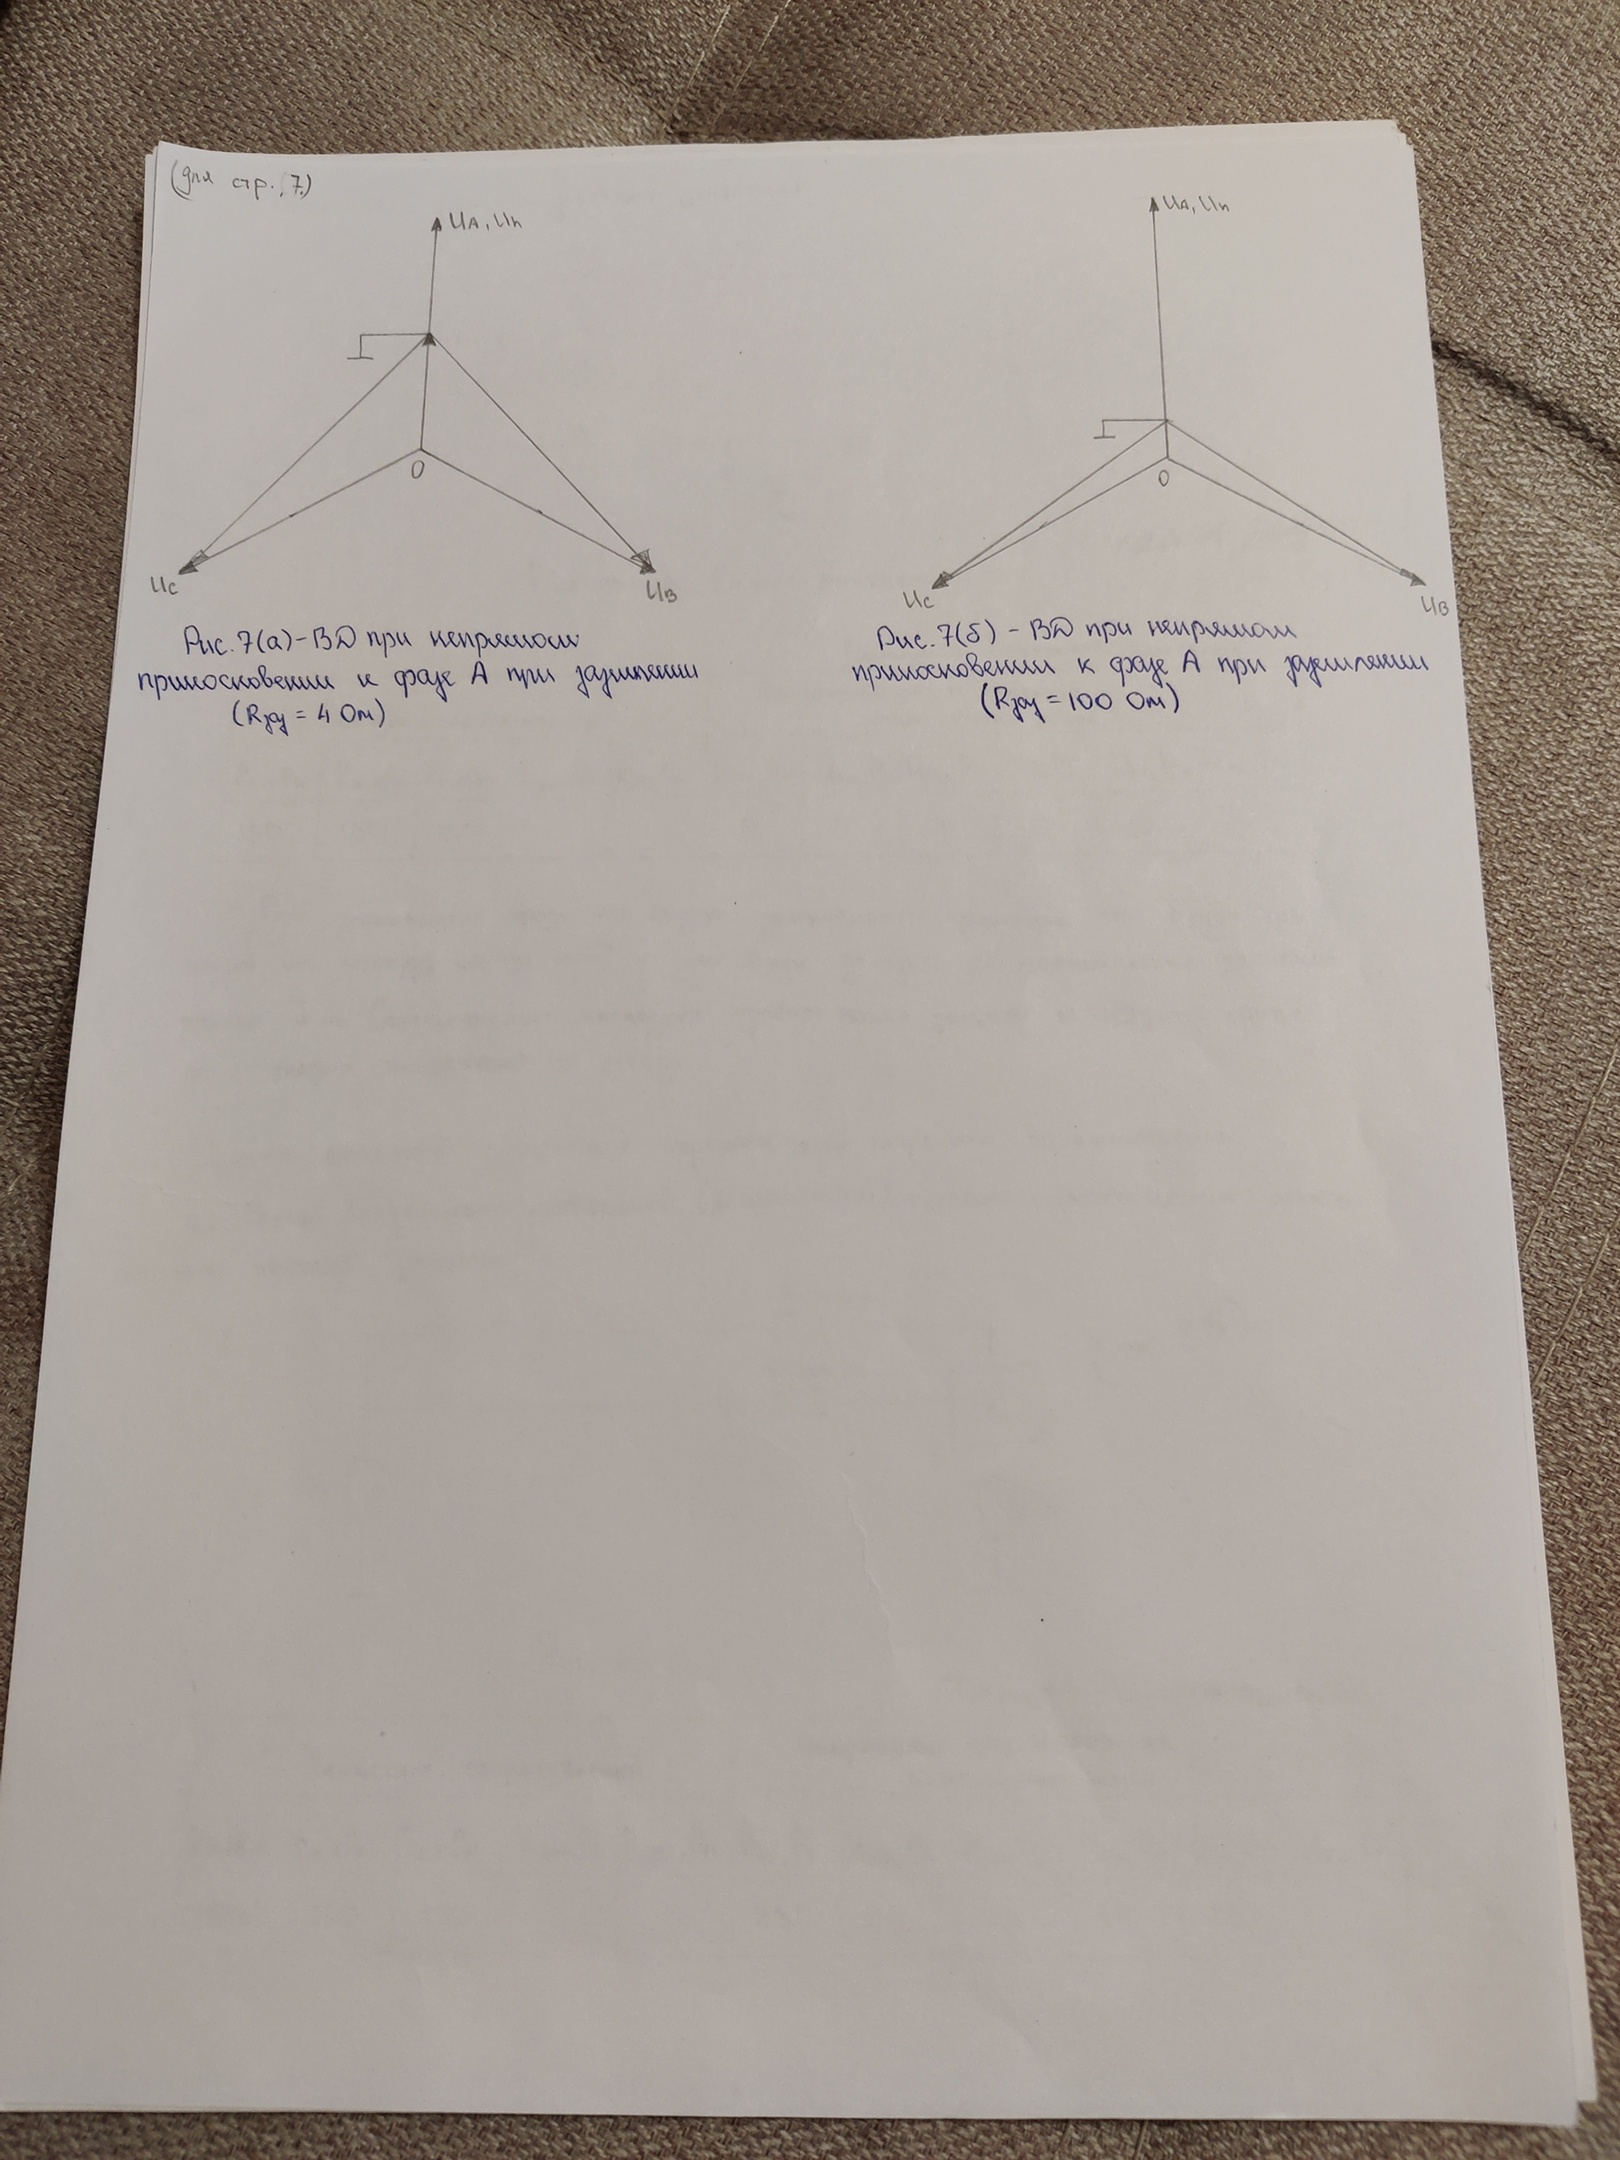 (для стр. 7.)
UA, Uh
O
Uc
UB
Рис. 7(а) - ВД при непрямом
прикосновении к фазе А при заземлении
(Rзаз = 4 Ом)
UA, Uh
O
Uc
UB
Рис. 7(б) - ВД при непрямом
прикосновении к фазе А при заземлении
(Rзаз = 100 Ом)